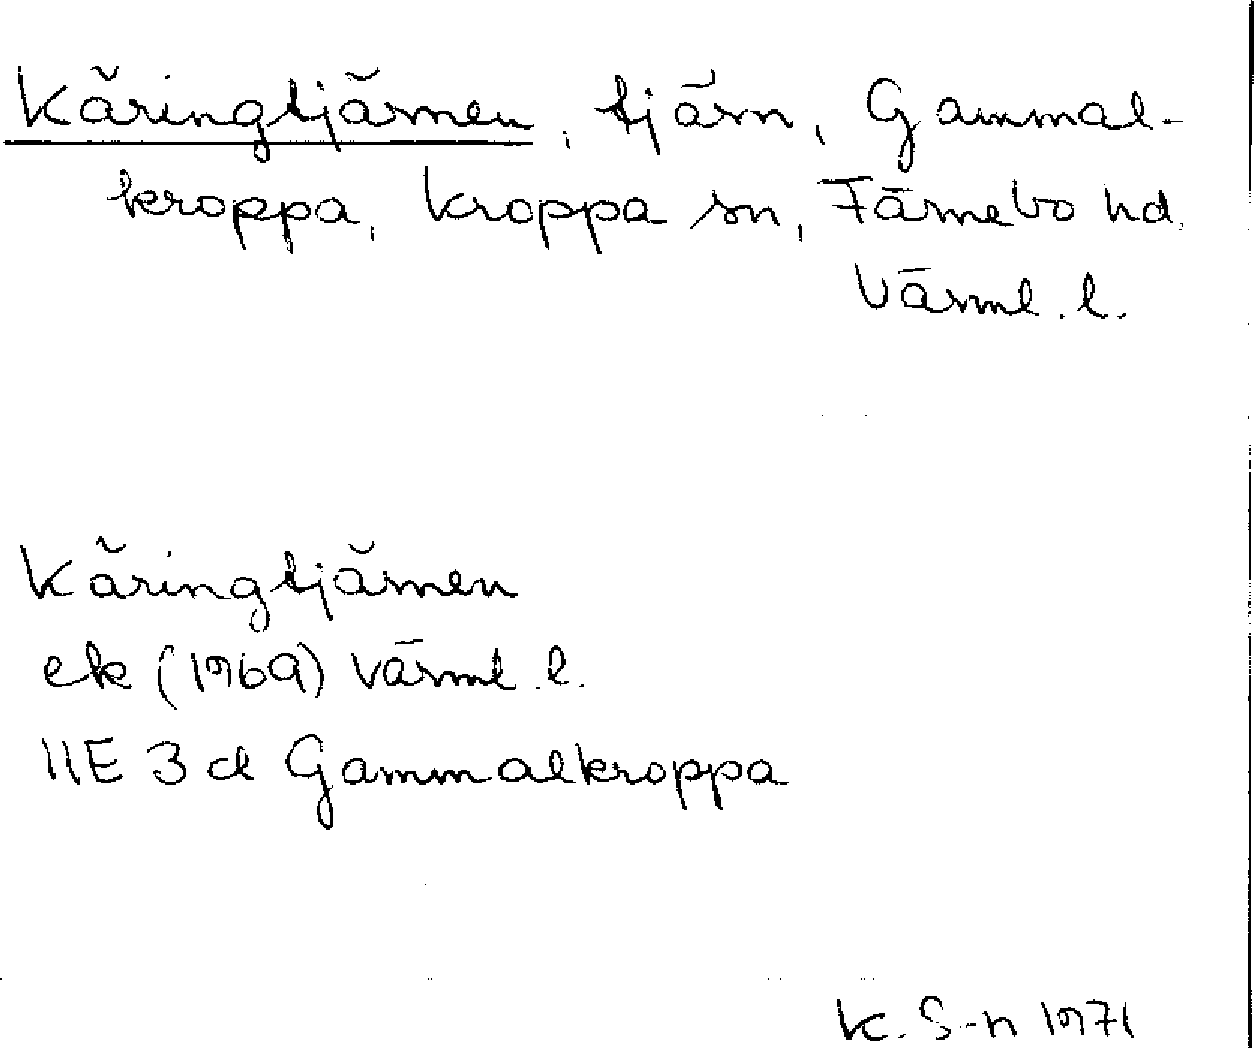 Käringtjärnen, tjärn, Gammal-
kroppa, Kroppa sn, Färnebo hd.
Värml. l.
Käringtjärnen
ek (1969) Värml. l.
11E 3d Gammalkroppa
K. S-n 1971